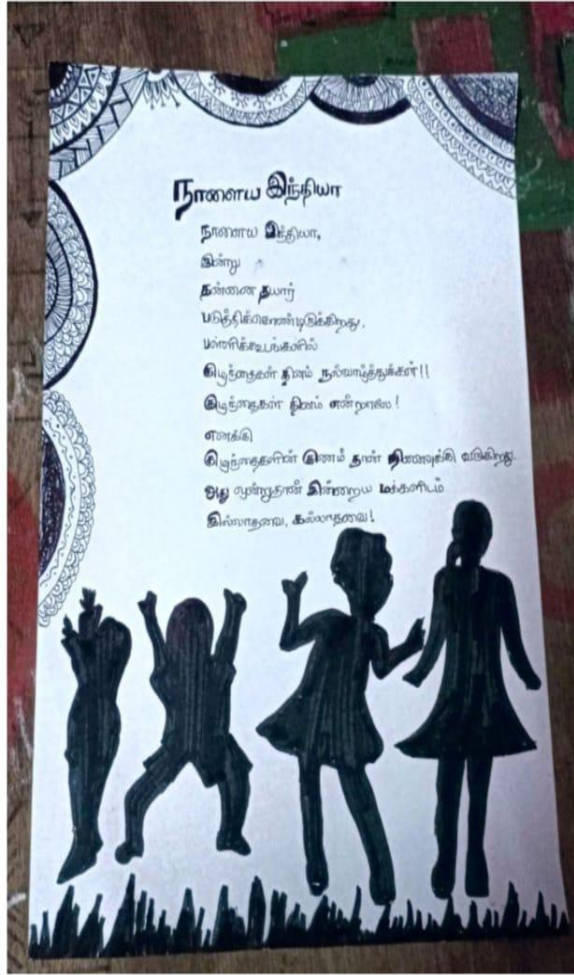 நாளைய இந்தியா
நாளைய இந்தியா,
இன்று
தன்னை தயார்
படுத்திக்கொண்டிருக்கிறது,
பள்ளிக்கூடங்களில்
குழந்தைகள் தினம் நல்வாழ்த்துக்கள்!!
குழந்தைகள் தினம் என்றாலே!
எனக்கு
குழந்தைகளின் குணம் தான் நினைவுக்கு வருகிறது.
அது மூன்றுதான் இன்றைய மக்களிடம்
இல்லாதவை, கல்லாதவை!